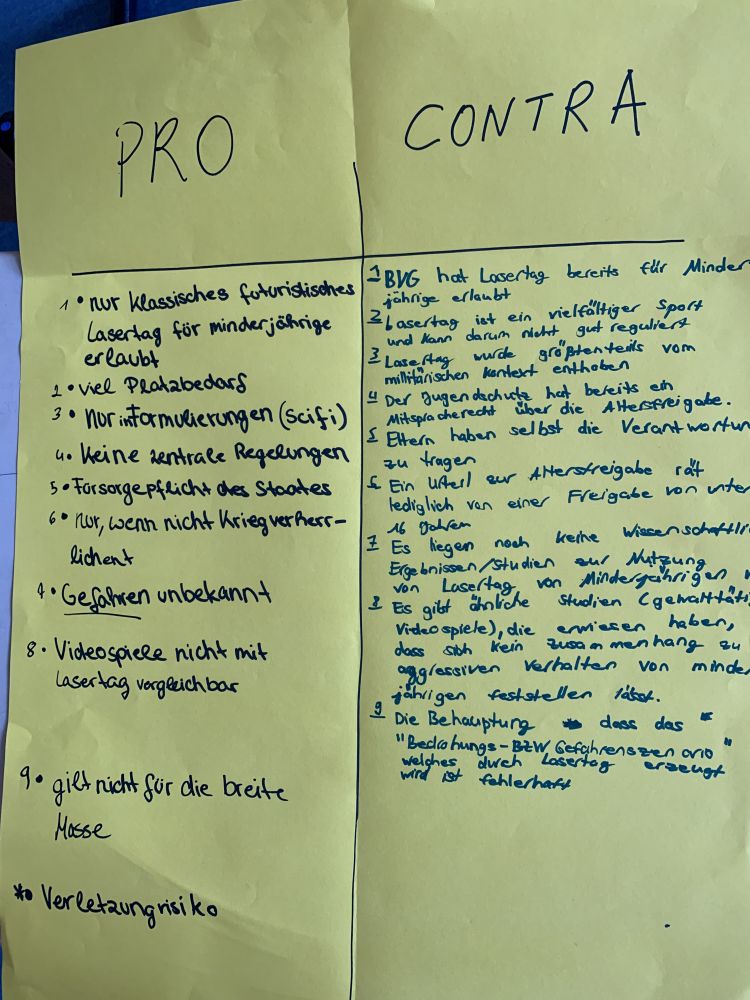 PRO
1 • nur klassisches futuristisches
Lasertag für minderjährige
erlaubt
2 • viel Platzbedarf
3 • nur in Formulierungen (Scifi)
4 • keine zentrale Regelungen
5 • Fürsorgepflicht des Staates
6 • nur, wenn nicht Kriegverherr-
lichent
7 • Gefahren unbekannt
8 • Videospiele nicht mit
Lasertag vergleichbar
9 • gilt nicht für die breite
Masse
* • Verletzungrisiko
CONTRA
1 BVG hat Lasertag bereits für Minder
jährige erlaubt
2 Lasertag ist ein vielfältiger Sport
und kann darum nicht gut reguliert
3 Lasertag wurde größtenteils vom
militärischen Kontext enthoben
4 Der Jugendschutz hat bereits ein
Mitspracherecht über die Altersfreigabe.
5 Eltern haben selbst die Verantwortun
zu tragen
6 Ein Urteil zur Altersfreigabe rät
lediglich von einer Freigabe von unter
16 Jahren
7 Es liegen noch keine wissenschaftli
Ergebnissen/Studien zur Nutzung
von Lasertag von Minderjährigen
8 Es gibt ähnliche Studien (gewalttäti
Videospiele), die erwiesen haben,
dass sich kein zusammenhang zu
aggressiven Verhalten von minder
jährigen feststellen lässt.
9 Die Behauptung dass das "
"Bedrohungs-BZW Gefahrenszenario"
welches durch Lasertag erzeugt
wird ist fehlerhaft